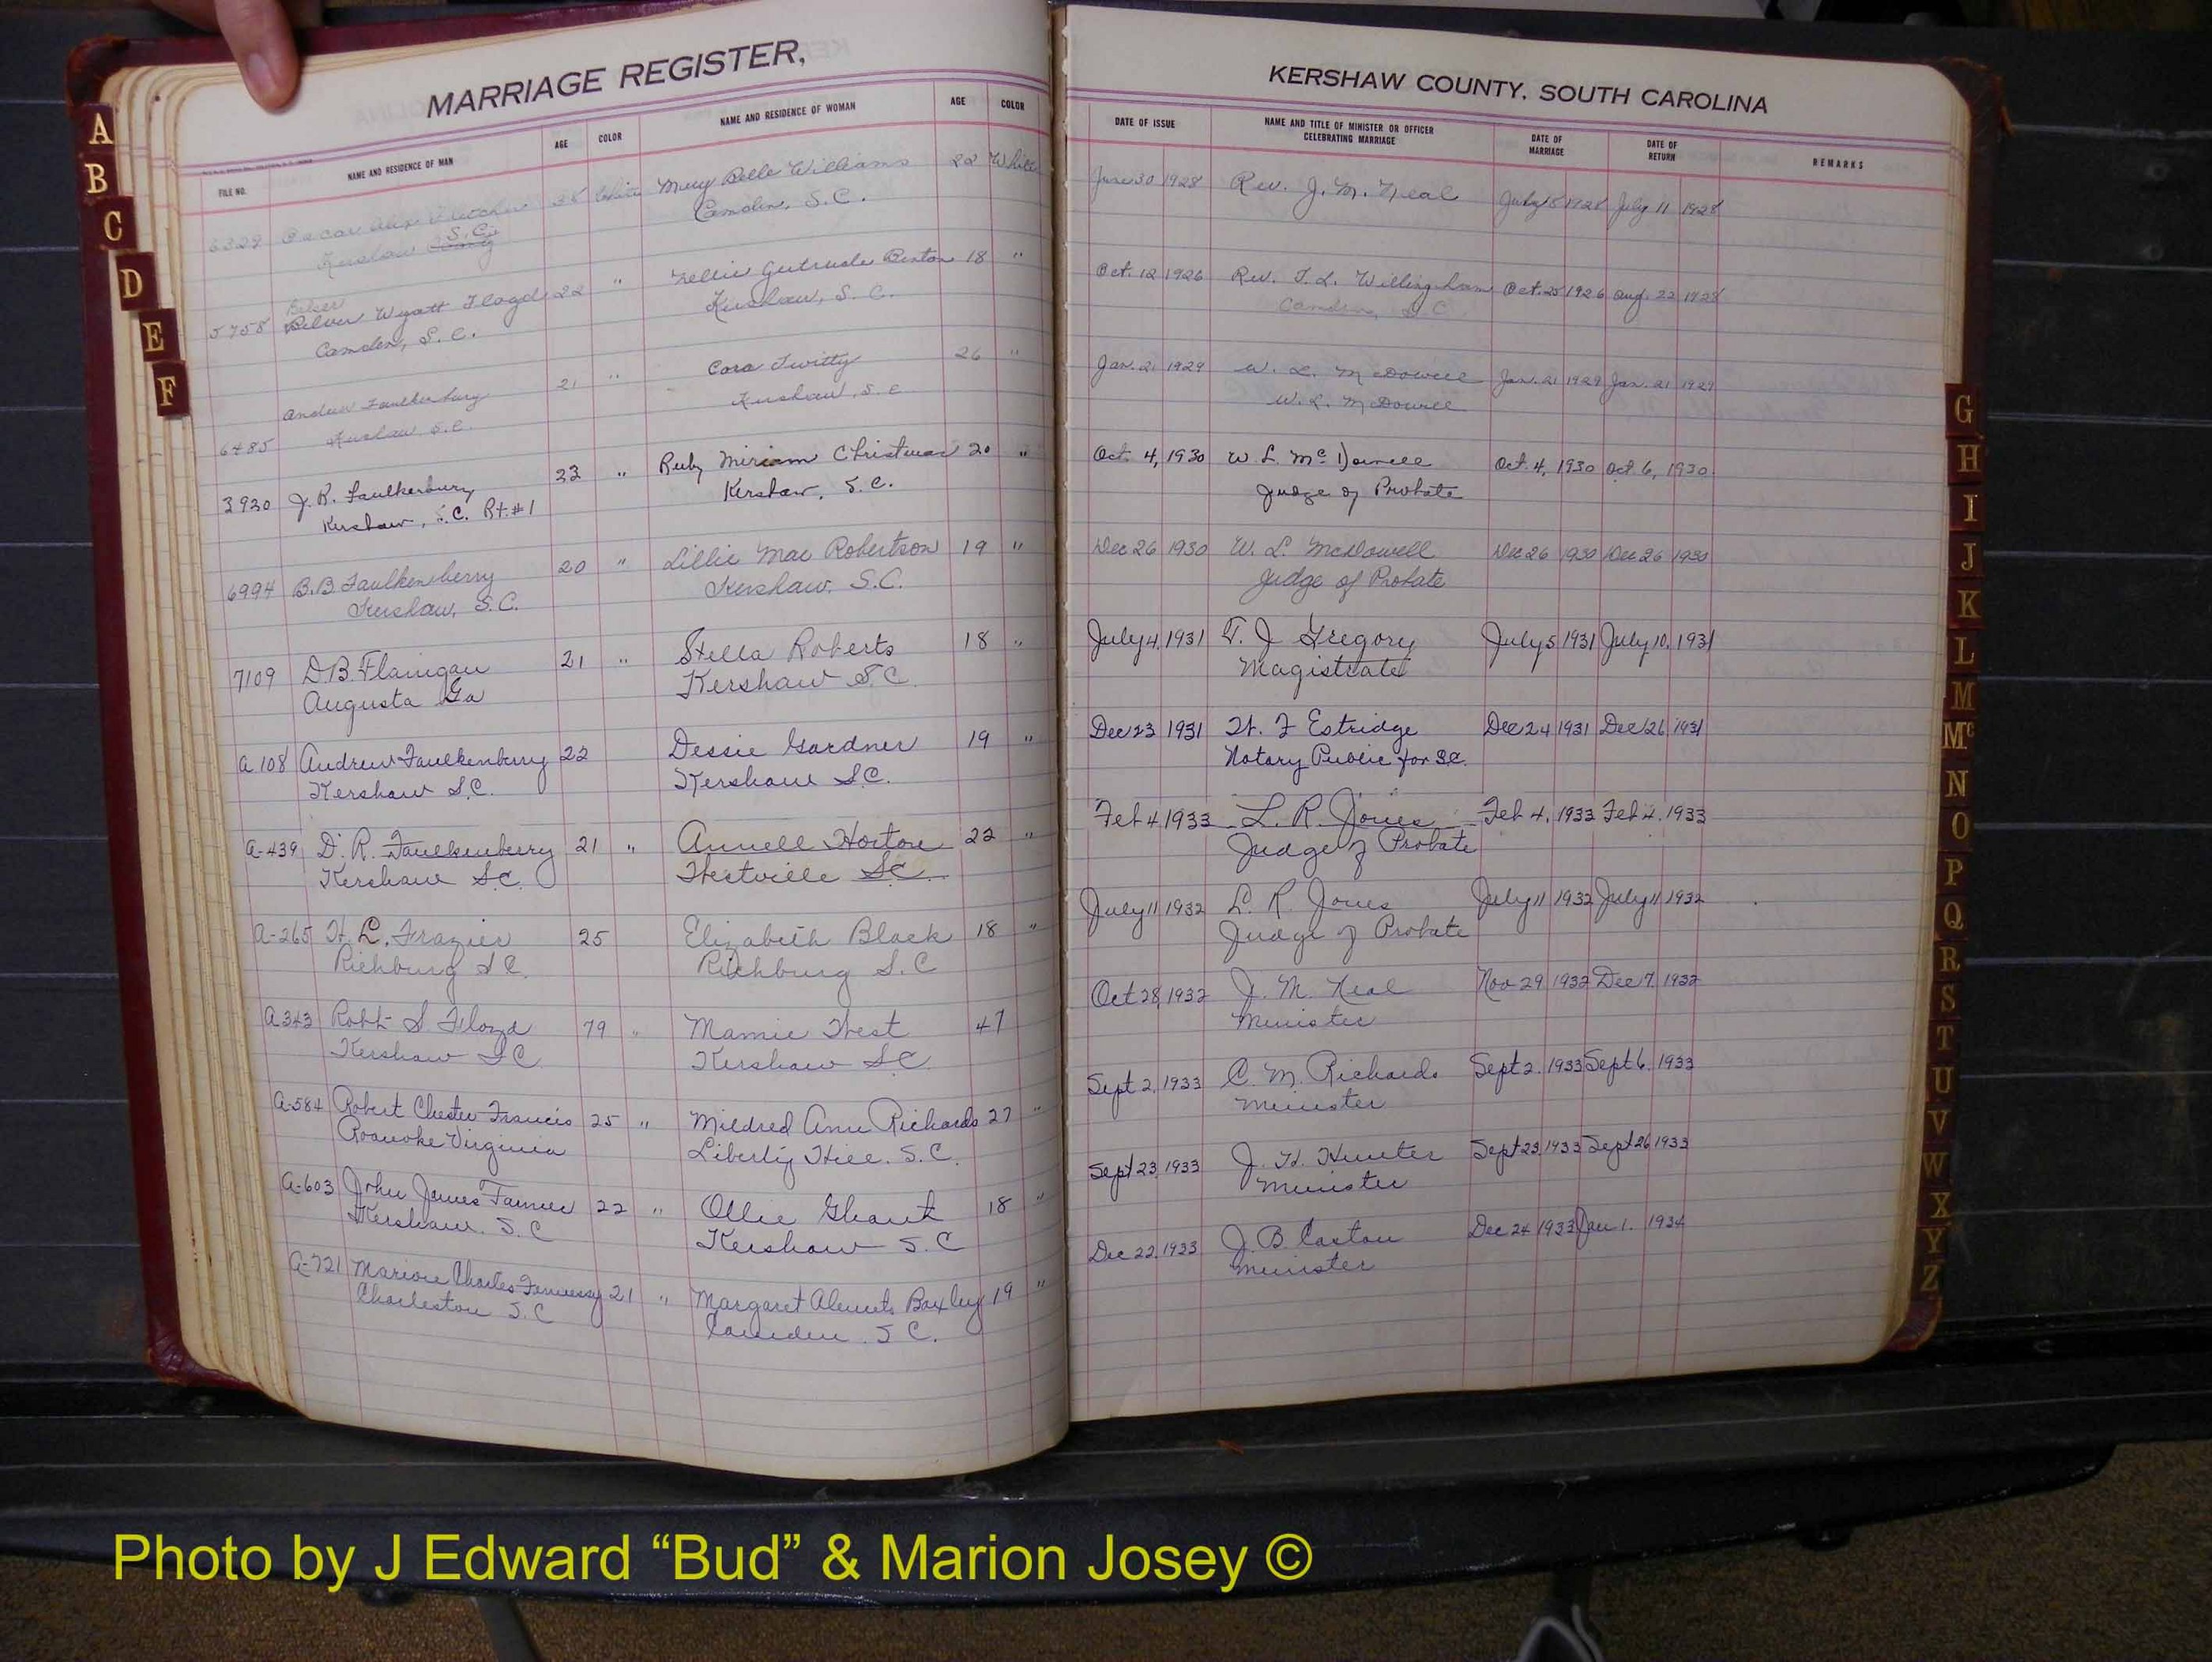 MARRIAGE REGISTER,
FILE NO. NAME AND RESIDENCE OF MAN AGE COLOR NAME AND RESIDENCE OF WOMAN AGE COLOR
6329 Oscar Alex Fletcher 38 White Mary Belle Williams 22 White
Kershaw County S.C. Camden, S.C.
Belser
5758 Belver Wyatt Floyd 22 " Nellie Gertrude Benton 18 "
Camden, S.C. Kershaw, S.C.
6485 Andrew Faulkenbury 21 " Cora Twitty 26 "
Kershaw S.C. Kershaw, S.C
3930 J. R. Faulkerbury 23 " Ruby Miriam Christmas 20 "
Kershaw, S.C. Rt. #1 Kershaw, S.C.
6994 B.B Faulkenberry 20 " Lillie Mae Robertson 19 "
Kershaw, S.C. Kershaw, S.C.
7109 D.B. Flanigan 21 " Stella Roberts 18 "
Augusta Ga Kershaw S.C
A 108 Andrew Faulkenberry 22 Dessie Gardner 19 "
Kershaw S.C. Kershaw S.C.
A-439 D. R. Faulkenberry 21 " Annell Horton 22 "
Kershaw S.C. Westville S.C.
A-265 H. L. Frazier 25 Elizabeth Black 18 "
Richburg S.C. Richburg S.C
A 343 Robt S Floyd 79 " Mamie West 47
Kershaw S C Kershaw S.C.
A-584 Robert Chester Francis 25 " Mildred Ann Richards 27 "
Roanoke Virginia Liberty Hill. S.C.
A-603 John James Farmer 22 " Ollie Ghant 18 "
Kershaw. S.C Kershaw S.C
A-721 Marion Charles Fennessy 21 " Margaret Baxley 19 "
Charleston S.C Camden. S C.
KERSHAW COUNTY, SOUTH CAROLINA
DATE OF ISSUE NAME AND TITLE OF MINISTER OR OFFICER CELEBRATING MARRIAGE DATE OF MARRIAGE DATE OF RETURN REMARKS
June 30 1928 Rev. J. M. Neal July 1928 July 11 1928
Oct. 12 1926 Rev. T. L. Willingham Oct. 25 1926 Aug. 22 1928
Camden, S.C
Jan. 21 1929 W. L. McDowell Jan. 21 1929 Jan. 21 1929
W. L. McDowell
Oct. 4, 1930 W. L. McDowell Oct. 4, 1930 Oct. 6, 1930.
Judge of Probate
Dec 26 1930 W. L. McDowell Dec 26 1930 Dec 26 1930
Judge of Probate
July 4, 1931 T. J Gregory July 5 1931 July 10, 1931
Magistrate
Dec 23 1931 H. F Estridge Dec 24 1931 Dec 26 1931
Notary Public for S.C.
Feb 4 1933 L. R. Jones Feb 4, 1933 Feb 4, 1933
Judge of Probate
July 11 1932 L. R. Jones July 11 1932 July 11 1932
Judge of Probate
Oct 28, 1932 J. M. Neal Nov 29 1932 Dec 7. 1932
Minister
Sept 2, 1933 C. M. Richards Sept 2. 1933 Sept 6. 1933
Minister
Sept 23, 1933 J. H. Hunter Sept 23, 1933 Sept 26 1933
Minister
Dec 22, 1933 J. B. Caston Dec 24 1933 Jan 1. 1934
Minister
A
B
C
D
E
F
G
H
I
J
K
L
M
Mc
N
O
P
Q
R
S
T
U
V
W
X
Y
Z
Photo by J Edward “Bud” & Marion Josey ©